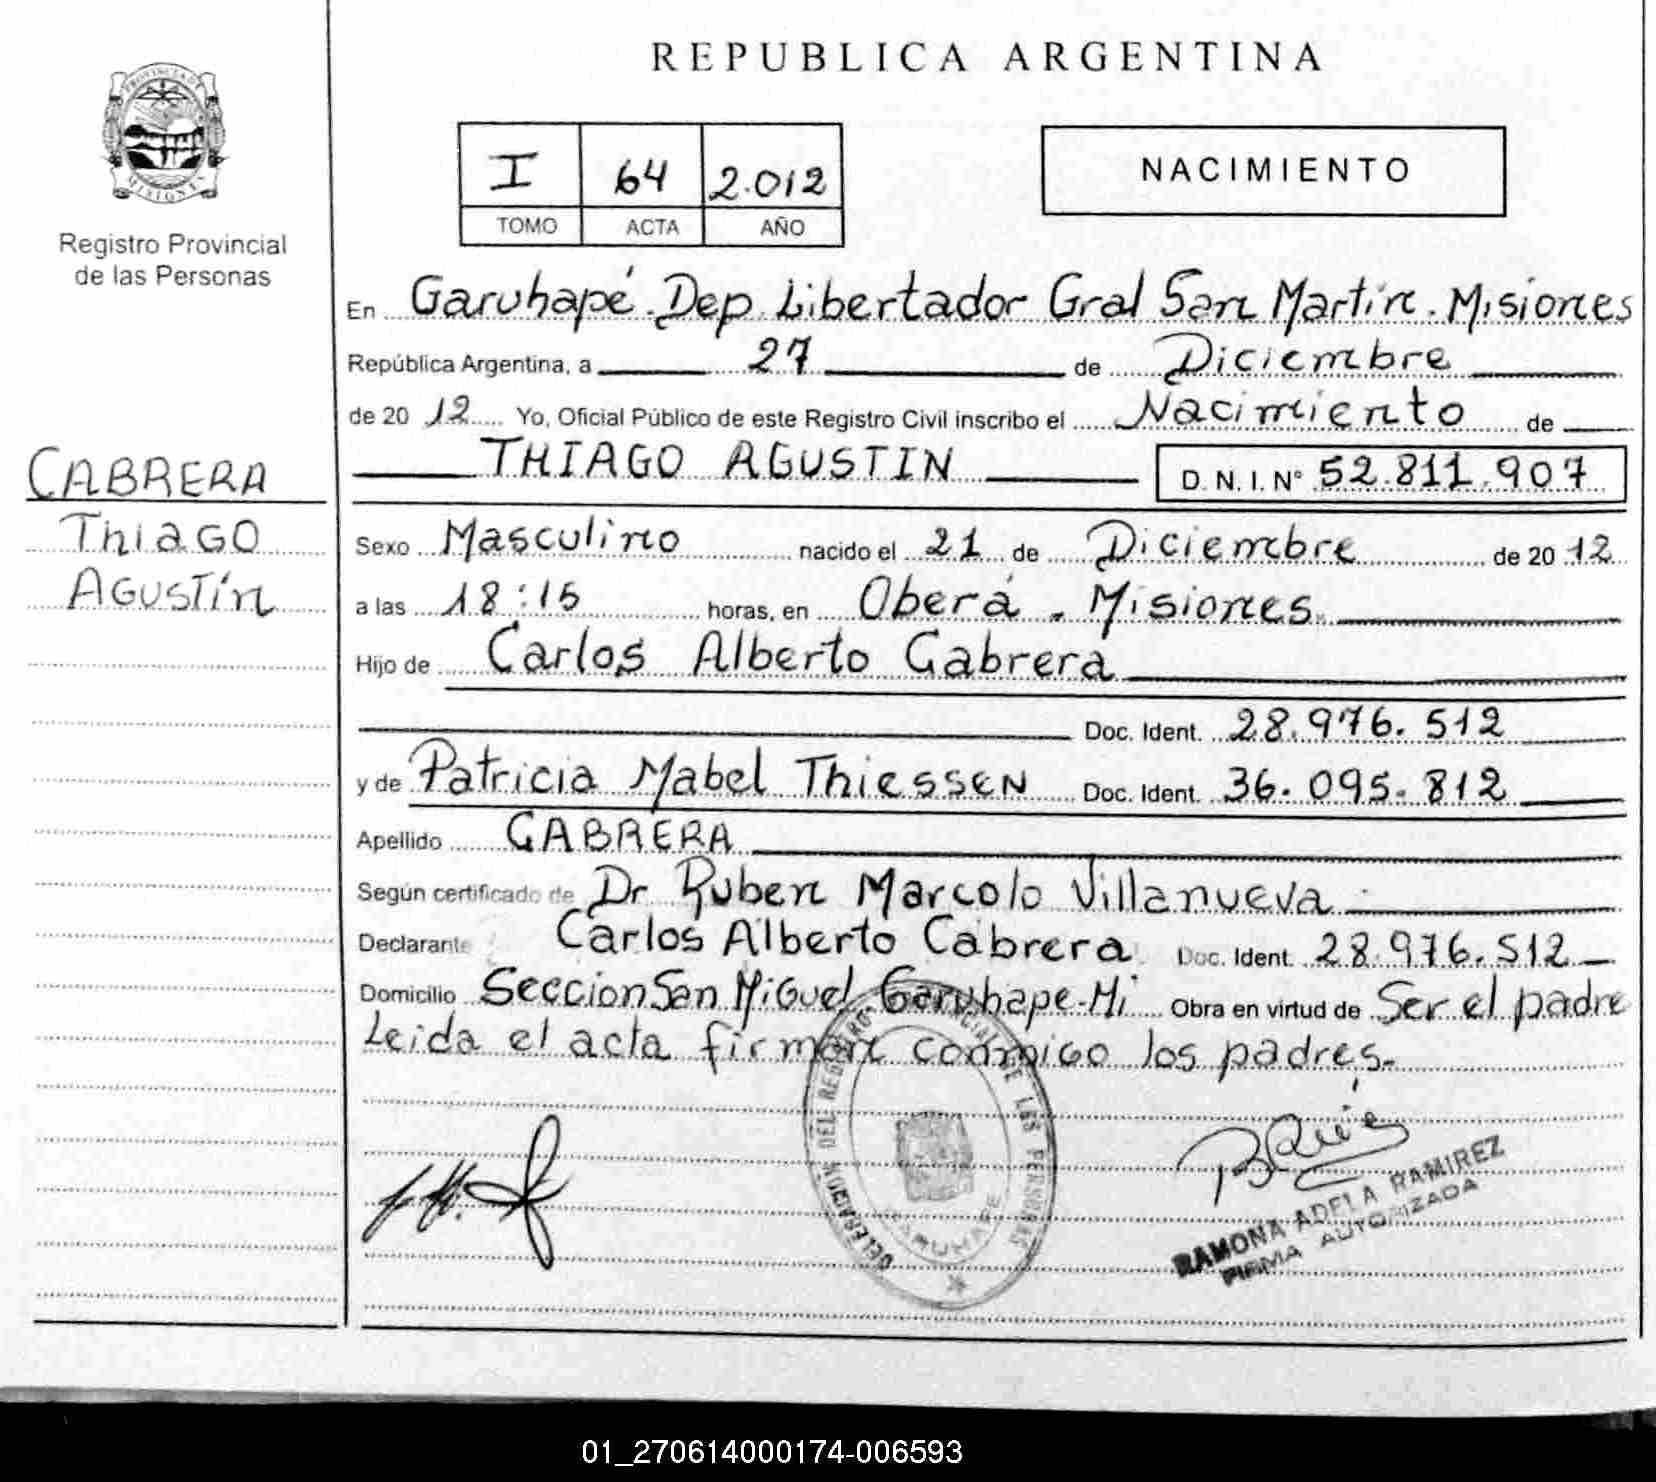 REPUBLICA ARGENTINA
PROVINCIA DE
MISIONES
Registro Provincial
de las Personas
I 64 2.012
TOMO ACTA AÑO
NACIMIENTO
En Garuhapé. Dep. Libertador Gral San Martín. Misiones
República Argentina, a 27 de Diciembre
de 20 12 Yo, Oficial Público de este Registro Civil inscribo el Nacimiento de
THIAGO AGUSTIN D. N. I. N° 52.811.907
CABRERA
Thiago
Agustín
Sexo Masculino nacido el 21 de Diciembre de 20 12
a las 18:15 horas, en Oberá. Misiones
Hijo de Carlos Alberto Cabrera
Doc. Ident. 28.976.512
y de Patricia Mabel Thiessen Doc. Ident. 36.095.812
Apellido CABRERA
Según certificado de Dr Ruben Marcolo Villanueva
Declarante Carlos Alberto Cabrera Doc. Ident. 28.976.512
Domicilio Seccion San Miguel Garuhape-Mi Obra en virtud de Ser el padre
Leida el acta firman conmigo los padres.
DELEGACION DEL REGISTRO PROVINCIAL DE LAS PERSONAS
GARUHAPE
RAMONA ADELA RAMIREZ
FIRMA AUTORIZADA
01_270614000174-006593